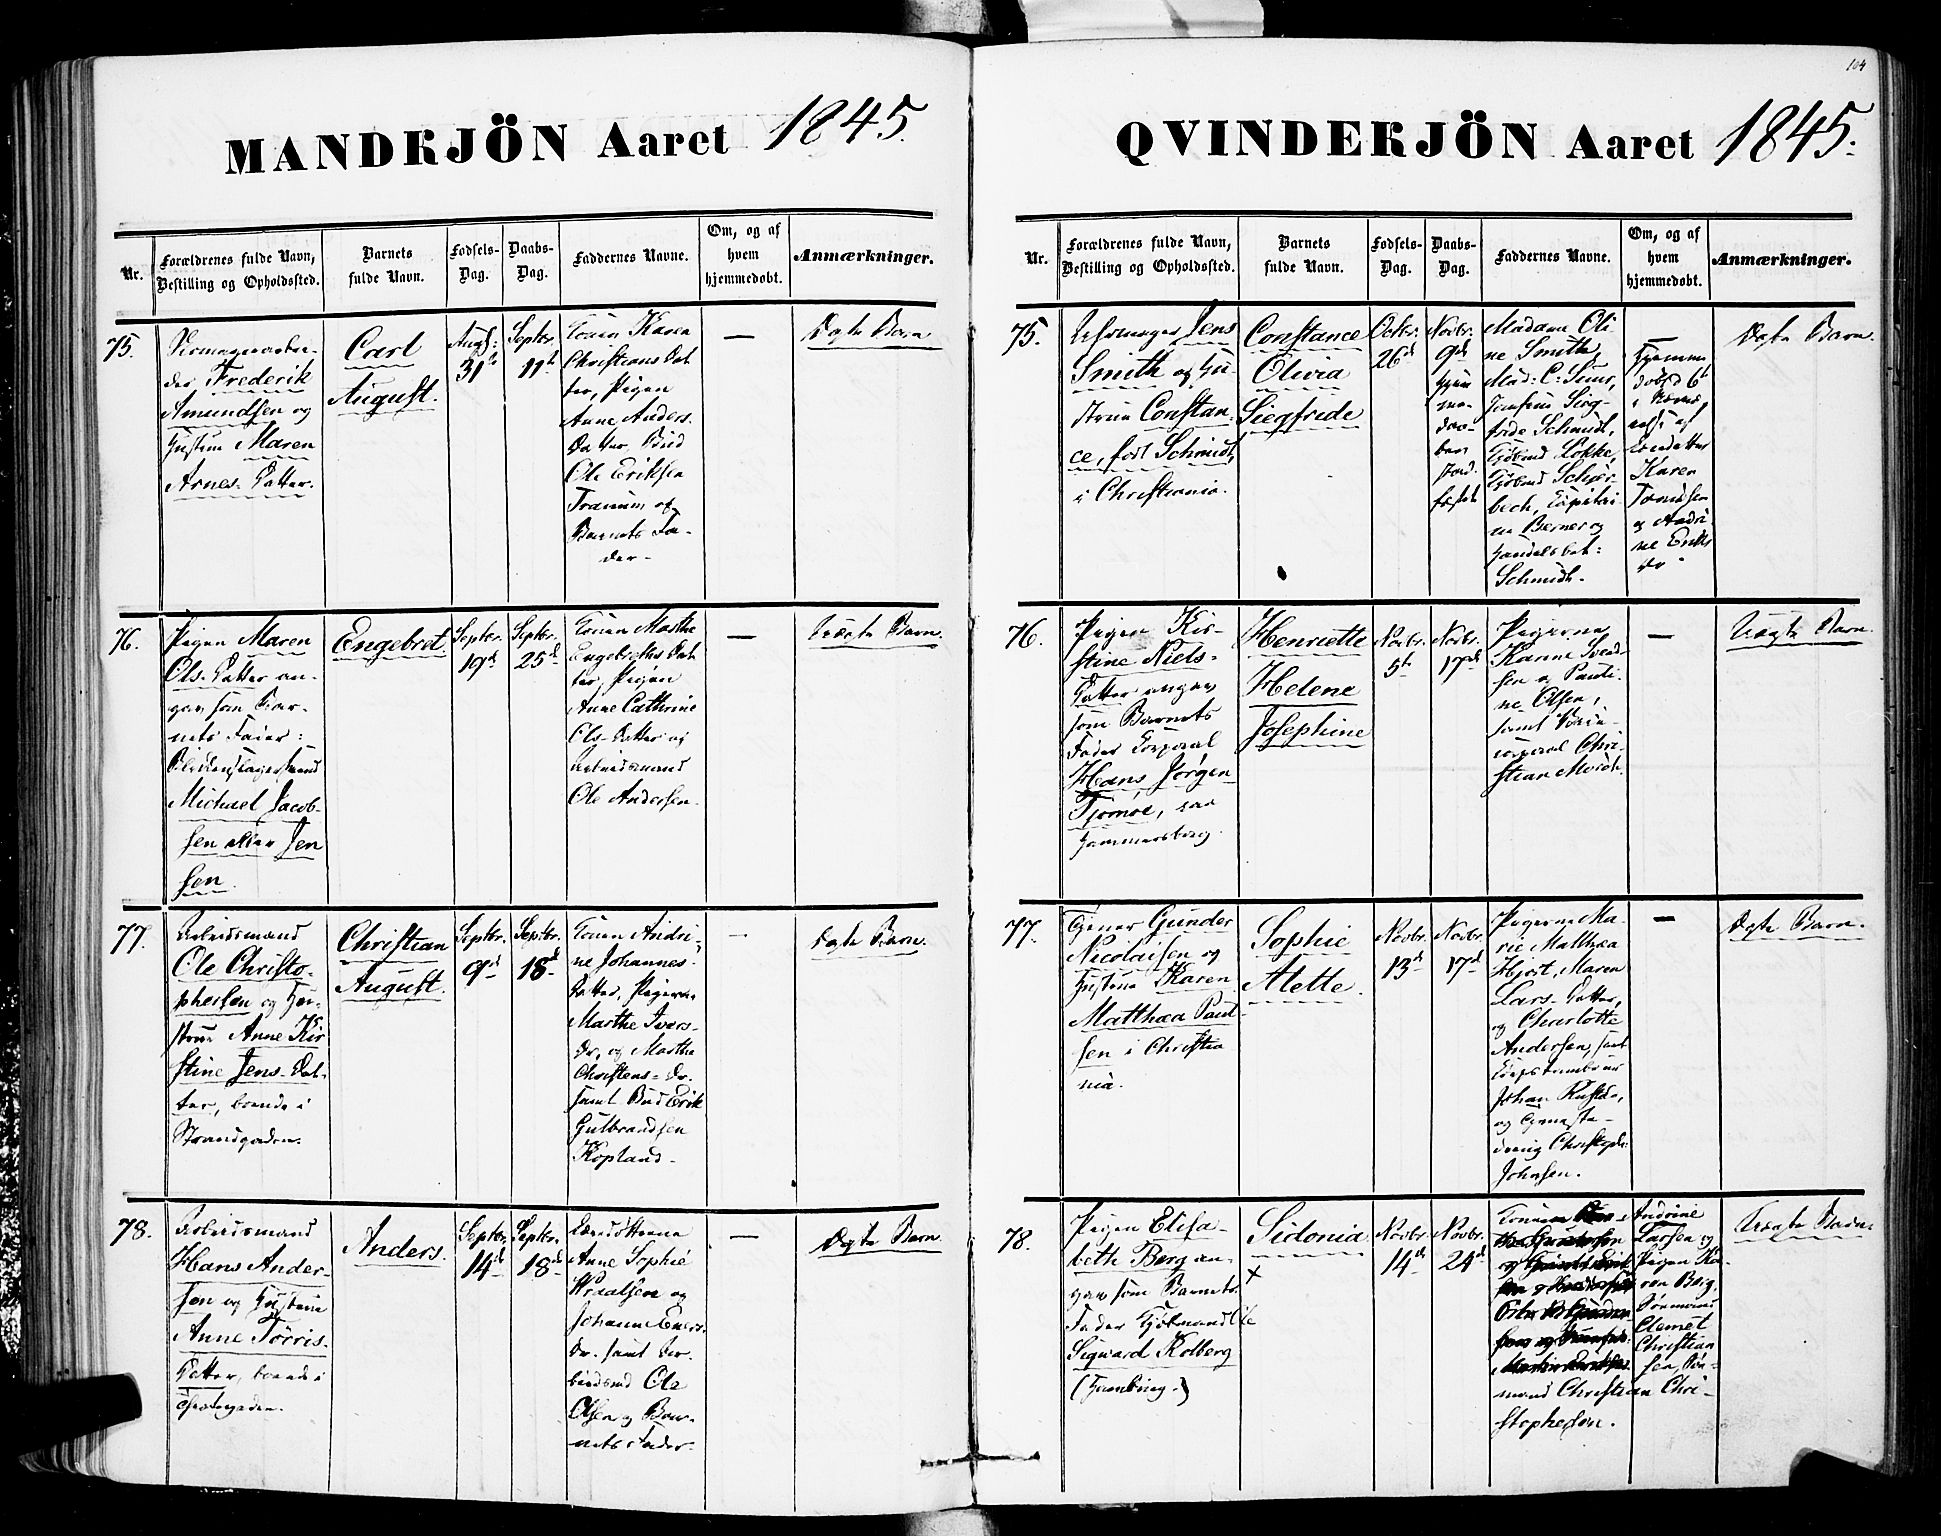 MANDKJÖN Aaret 1845.
Nr.
Forældrenes fulde Navn,
Bestilling og Opholdssted.
Barnets
fulde Navn.
Fødsels-
Dag.
Daabs-
Dag.
Faddernes Navne.
Om, og af
hvem
hjemmedøbt.
Anmærkninger.
75.
Frederik
Amundsen og
Hustrue Maren
Arnes-Datter.
Carl
August.
Aug:
31te
Septbr.
11te
Konen Karen
Christians Dat
ter, Pigen
Anne Anders-
Datter, Bud
Ole Eriksen
og
Barnets Fa-
der-
—
Ægte Barn
76.
Pigen Maren
Ols-Datter an-
gav som Bar-
nets Fader:
Michael Jacob-
sen eller Jen
sen.
Engebret
Septbr.
19de
Septbr.
25de
Konen Marthe
Engebrets Dat
ter, Pigen
Anne Cathrine
Ols-Datter og
Arbeidsmand
Ole Andersen.
—
Uægte Barn.
77.
Arbeidsmand
Ole Christo-
phersen og Hu-
strue Anne Kir
stine Jens-Dat-
ter, boende i
Strandgaden.
Christian
August.
Septbr.
9de
Septbr.
18de
Konen Andri-
ne Johannes-
Datter, Pigerne
Marthe Ivers-
Dr. og Marthe
Christens-Dr.
samt Bud Erik
Gulbrandsen
Kopland.
—
Ægte Barn.
78.
Arbeidsmand
Hans Ander-
sen og Hustrue
Anne Tørris-
Datter, boende i
Anders.
Septbr.
14de
Septbr.
18de
Anne Sophie
og
Johanne Evers-
Dr. samt Ar-
beidsmd Ole
Olsen og Bar-
nets Fader.
—
Ægte Barn
104
QVINDEKJÖN Aaret 1845.
Nr.
Forældrenes fulde Navn,
Bestilling og Opholdssted.
Barnets
fulde Navn.
Fødsels-
Dag.
Daabs-
Dag.
Faddernes Navne.
Om, og af
hvem
hjemmedøbt.
Anmærkninger.
75.
Jens
Smith og Hu-
strue Constan-
ce, født Schmidt,
i Christiania.
Constance
Olivia
Siegfride
Octbr.
26de
Novbr.
9de
hjem-
me-
daa-
ben
stad-
fæstet
Madame Oli-
ne Smith,
Mad: C:
Jomfrue Sieg-
fride Schmidt,
Kjøbmd Løkke,
Kjøbmd
Capitai-
n Berner og
Handelsbet:
Schmidt.
Hjemme
døbt d 6t
i
af
Karen
og Andri-
ne Eriks
Dr
Ægte Barn.
76.
Pigen Kir-
stine Niels-
Datter angav
som Barnets
Fader Corporal
Hans Jørgen
Tjomøe, paa
Hammersborg.
Henriette
Helene
Josephine
Novbr.
5te
Novbr.
17de
Pigerne
Karine Svend-
sen og Pauli-
ne Olsen,
samt
corporal Chri-
stian
—
Uægte Barn.
77.
Tjener Gunder
Nicolaisen og
Hustrue Karen
Matthæa Paul-
sen i Christia
nia.
Sophie
Alette.
Novbr.
13de
Novbr.
17de
Pigerne Ma-
rie Matthea
Hjort, Maren
Lars-Datter,
og Charlotte
Andersen, samt
Johan
og
Johnsen.
—
Ægte Barn.
78.
Pigen Elisa-
beth Berg an-
gav som Barnets
Fader Kjøbmand
Sigvard Kolberg
(Hamburg.)
Sidonia
×
Novbr.
14de
Novbr.
24de
Konen
Andrine
Larsen og
Pigen Ka-
ren Berg,
Sømand
Clemet
Christian
sen, Sø-
mand Christian Chri-
stophersen.
Uægte Barn.